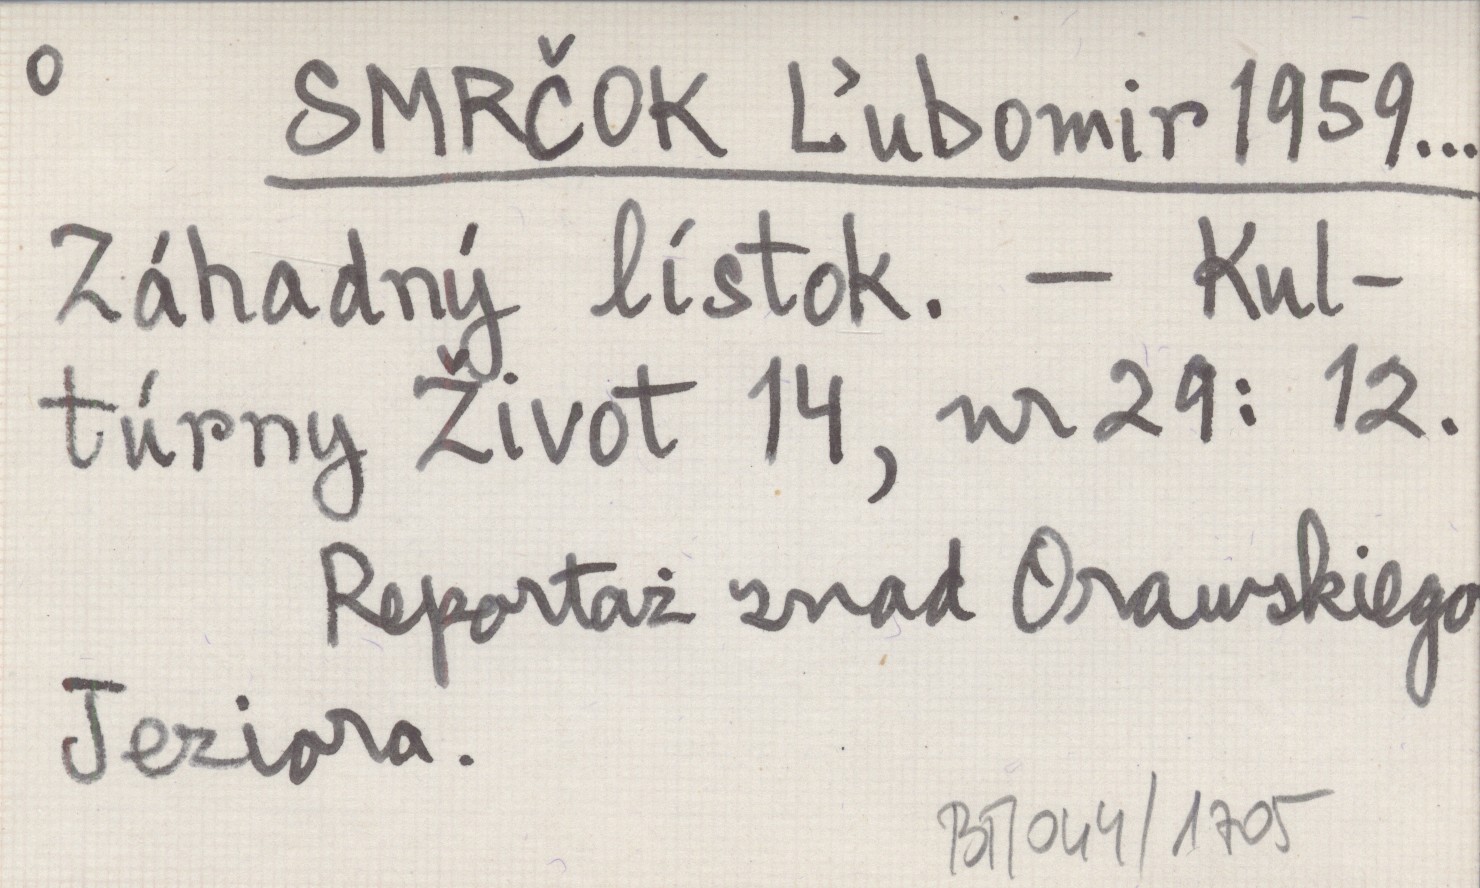 o SMRČOK Ľubomir 1959...
Záhadný lístok. — Kul-
túrny Život 14, nr 29: 12.
Reportaż znad Orawskiego
Jeziora.
BT/044/1705